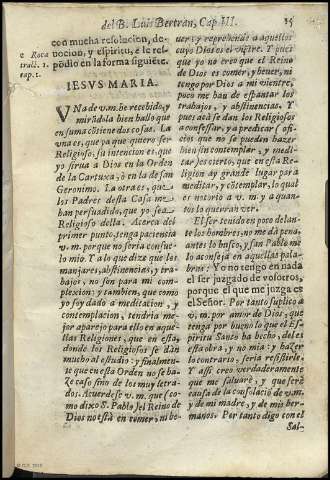 del B. Luis Bertran, Cap. III.
15
e Roca
trall. 1.
cap. 1.
con mucha resolucion, de-
uocion, y espiritu, e le res-
põdio en la forma siguiẽte.
IESVS MARIA.
VNa de v.m. he recebido, y
mirãdola bien hallo que
en suma cõtiene dos cosas. La
vna es, que ya que quiero ser
Religioso, su intencion es, que
yo sirua a Dios en la Orden
de la Cartuxa, ò en la de san
Geronimo. La otra es, que
los Padres desta Casa me
han persuadido, que yo sea
Religioso della. Acerca del
primer punto, tenga paciencia
v. m. porque no seria consue-
lo mio. Y a lo que dize que los
manjares, abstinencias, y tra-
bajos, no son para mi com-
plexion: y tambien, que como
yo soy dado a meditacion, y
contemplacion, tendria me-
jor aparejo para ello en aque-
llas Religiones, que en esta,
donde los Religiosos se dàn
mucho al estudio: y finalmen-
te que en esta Orden no se ha-
ze caso sino de los muy letra-
dos. Acuerdese v. m. que (co-
mo dixo S. Pablo) el Reino de
Dios no està en comer, ni be-
uer: y reprehende a aquellos
cuyo Dios es el vientre. Y pues
que yo no creo que el Reino
de Dios es comer, y beuer, ni
tengo por Dios a mi vientre,
poco me han de espantar los
trabajos, y abstinencias. Y
pues acà se dan los Religiosos
a confessar, y a predicar (ofi-
cios que no se pueden hazer
bien sin contemplar, y medi-
tar) es cierto, que en esta Re-
ligion ay grande lugar para
meditar, y cõtemplar, lo qual
es notorio a v. m. y a quan-
tos lo querran ver.
El ser tenido en poco delan-
te los hombres, no me dà pena,
antes lo busco, y san Pablo me
lo aconseja en aquellas pala-
bras: Yo no tengo en nada
el ser juzgado de vosotros,
porque el que me juzga es
el Señor. Por tanto suplico a
v. m. por amor de Dios, que
tenga por bueno lo que el Es-
piritu Santo ha hecho, del es
esta obra, y no mia: y hazer
lo contrario, seria resistirle.
Y assi creo verdaderamente
que me saluarè, y que serè
causa de la consolaciõ de v. m.
y de mi madre, y de mis her-
manos. Por tanto digo con el
Sal-